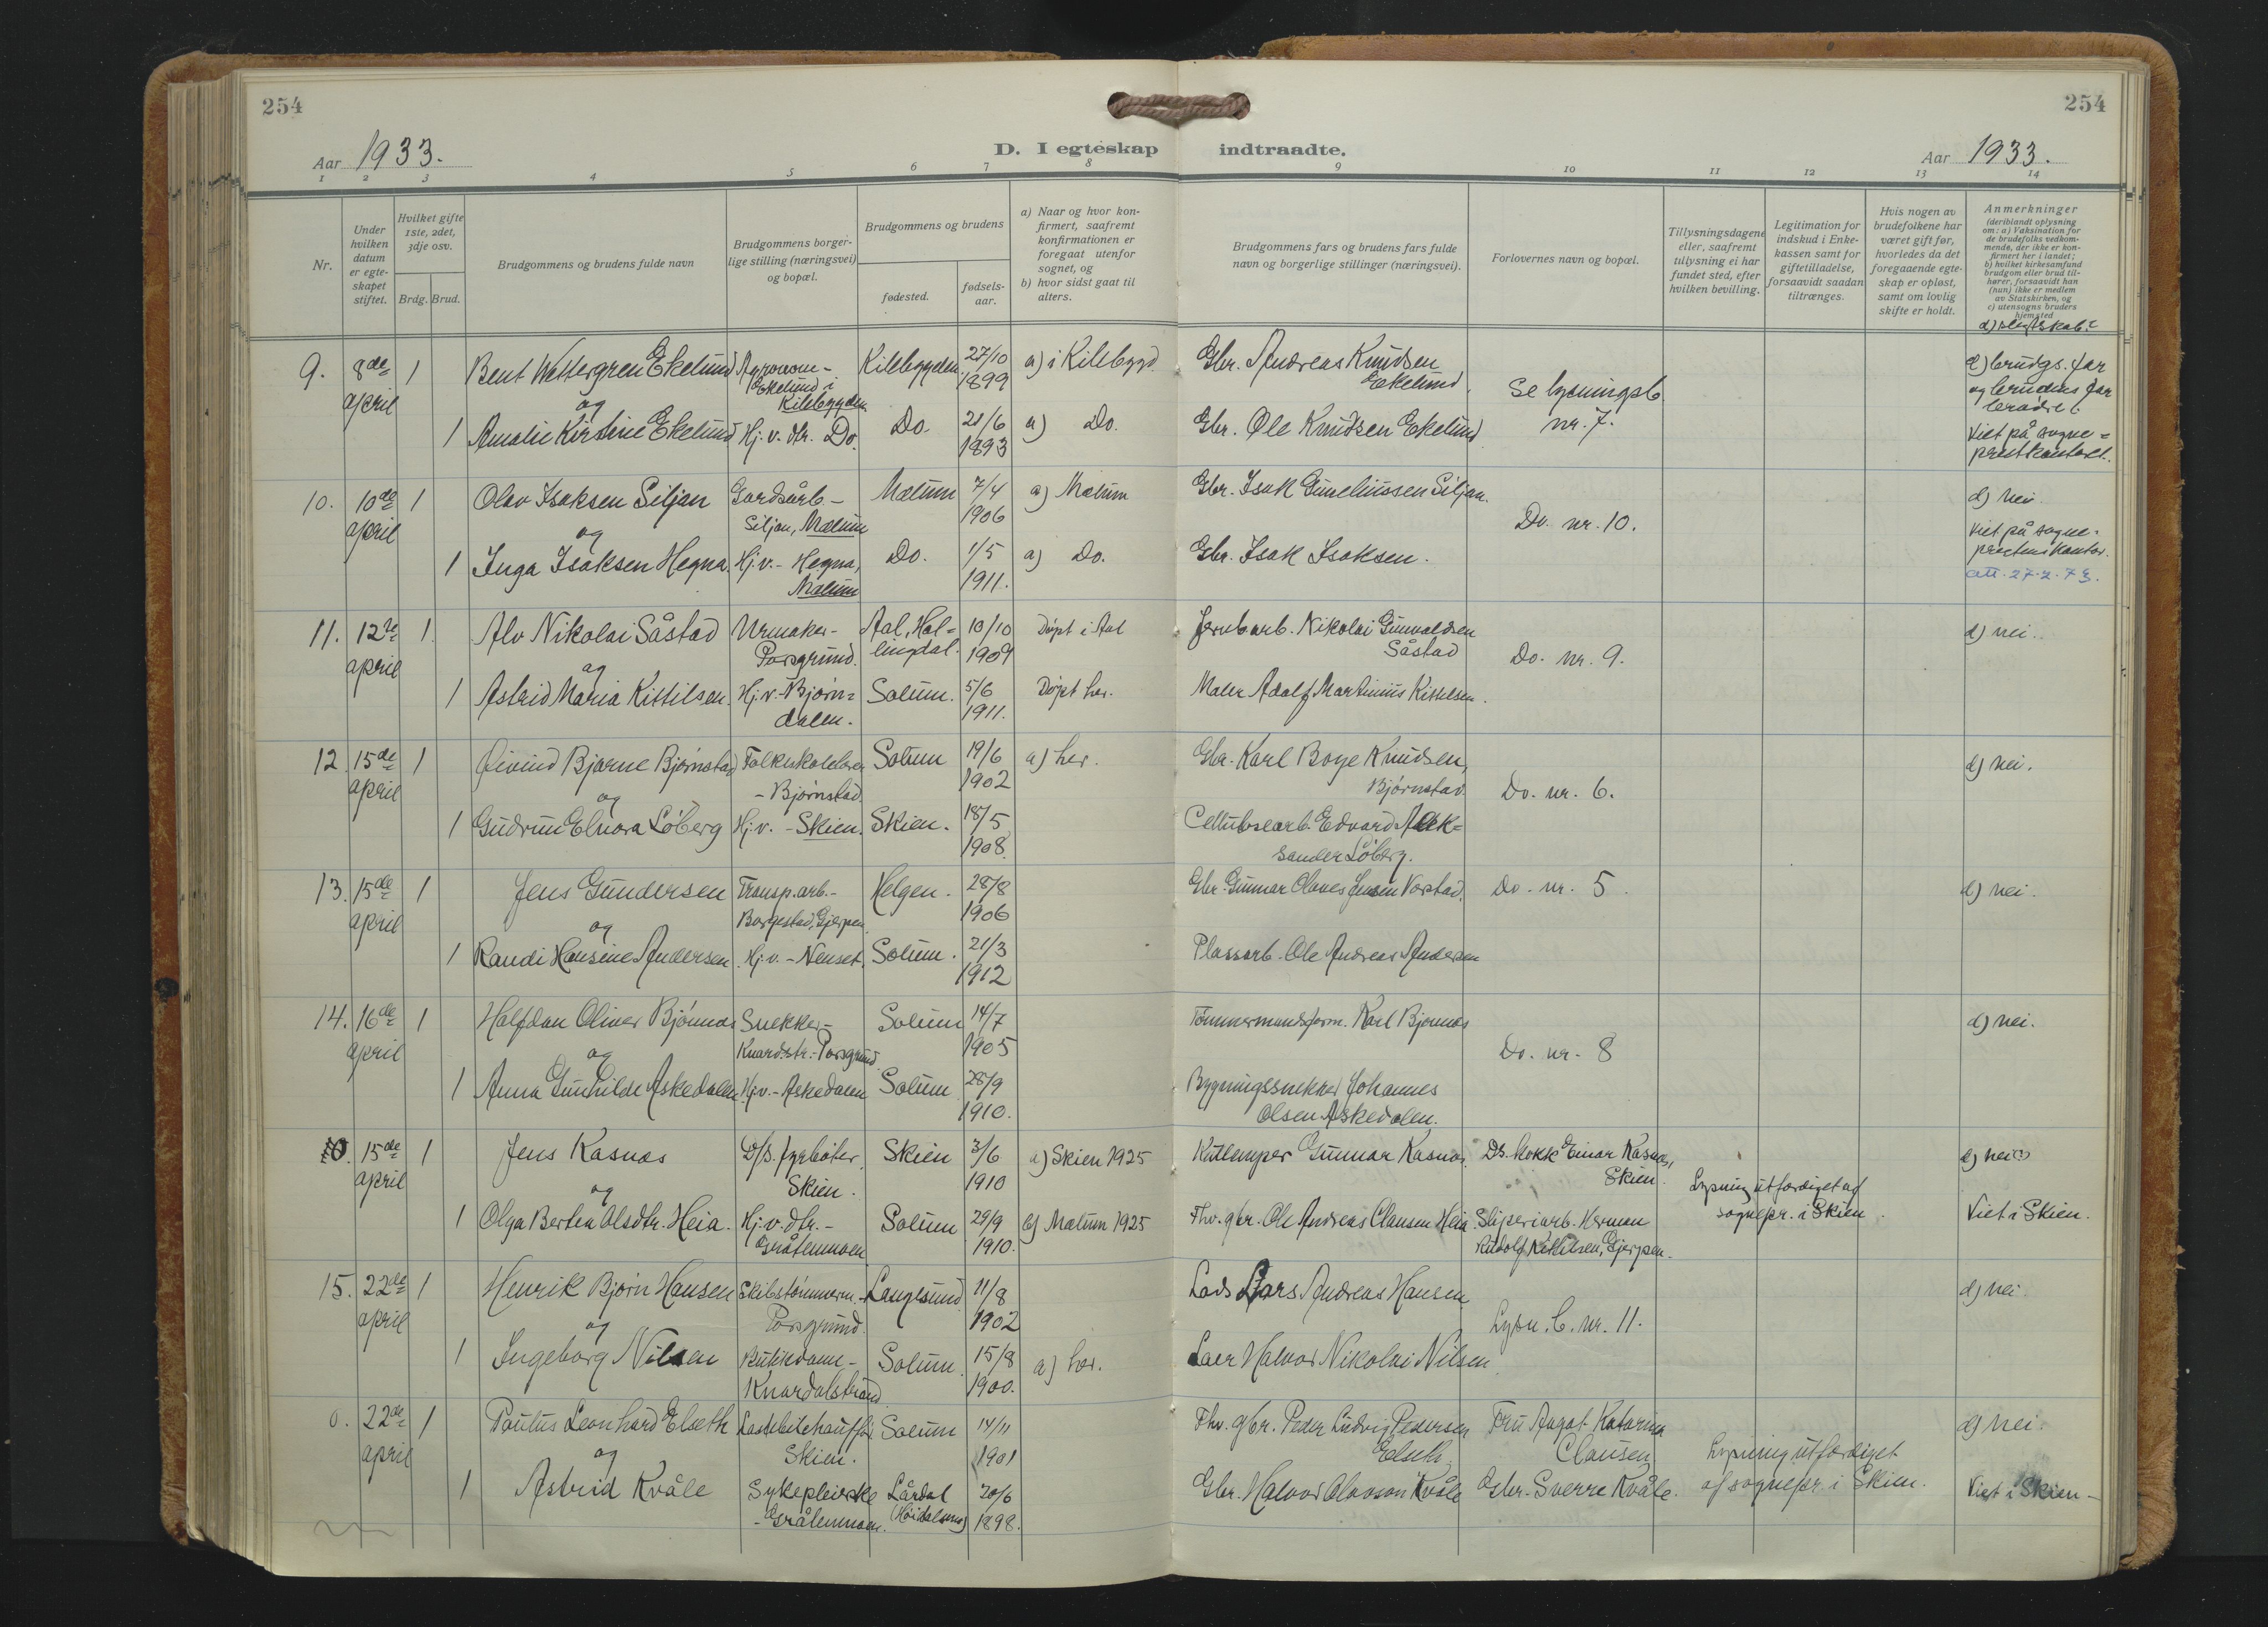 254
254
Aar 1933.
D. I egteskap indtraadte.
Aar 1933.
1 2 3 4 5 6 7 8 9 10 11 12 13 14
Nr.
Under hvilken datum er egteskapet stiftet.
Hvilket gifte 1ste, 2det, 3dje osv.
Brdg. Brud.
Brudgommens og brudens fulde navn
Brudgommens borgerlige stilling (næringsvei) og bopæl.
Brudgommens og brudens
fødested.
fødselsaar.
a) Naar og hvor konfirmert, saafremt konfirmationen er foregaat utenfor sognet, og
b) hvor sidst gaat til alters.
Brudgommens fars og brudens fars fulde navn og borgerlige stillinger (næringsvei).
Forlovernes navn og bopæl.
Tillysningsdagene eller, saafremt tillysning ei har fundet sted, efter hvilken bevilling.
Legitimation for indskud i Enkekassen samt for giftetilladelse, forsaavidt saadan tiltrænges.
Hvis nogen av brudefolkene har været gift før, hvorledes da det foregaaende egteskap er opløst, samt om lovlig skifte er holdt.
Anmerkninger
(deriblandt oplysning om: a) Vaksination for de brudefolks vedkommende, der ikke er konfirmert her i landet;
b) hvilket kirkesamfund brudgom eller brud tilhører, forsaavidt han (hun) ikke er medlem av Statskirken, og
c) utensogns bruders hjemsted
d) slegtskab?
9. 8de april 1 Bent Wettergren Ekelund Agronom - Ekelund i Kilebygden Kilebygden 27/10 1899 a) i Kilebygd. Gbr. Andreas Knudsen Ekelund. Se lysningsb. nr. 7. d) brudgs. far og brudens far brødre.
og
1 Amalie Kirstine Ekelund Hj.v. dtr. Do. Do. 21/6 1893 a) Do. Gbr. Ole Knudsen Ekelund Viet på sogneprestkontoret.
10. 10de april 1 Olav Isaksen Siljan Gardsarb - Siljan, Mælum Mælum 7/4 1906 a) Mælum Gbr. Isak Siljan. Do. nr. 10. d) nei.
og
1 Inga Isaksen Hegna. Hj.v. - Hegna, Mælum Do. 1/5 1911. a) Do. Gbr. Isak Isaksen. Viet på sogneprestens kontor.
att. 27.2.73.
11. 12te april 1. Alv Nikolai Såstad Urmaker - Porsgrund. Aal, Hallingdal. 10/10 1909 Døpt i Aal Jernbarb. Nikolai Gunvaldsen Såstad Do. nr. 9. d) nei.
og
1 Astrid Maria Kittilsen. Hj.v. - Bjørndalen. Solum. 5/6 1911. Døpt her. Maler Adolf Martinius Kittelsen.
12. 15de april 1 Øivind Bjarne Bjørnstad Folkeskolelærer - Bjørnstad. Solum 19/6 1902 a) her. Gbr. Karl Boye Knudsen, Bjørnstad. Do. nr. 6. d) nei.
og
1 Gudrun Elnora Løberg Hj.v. - Skien. Skien. 18/5 1908. Cellulosearb. Edvard Aleksander Løberg.
13. 15de april 1 Jens Gundersen Transp.arb. - Borgestad, Gjerpen. Helgen. 28/8 1906 Gbr. Gunnar Olaves Jensen Do. nr. 5. d) nei.
og
1 Randi Hansine Andersen. Hj.v. - Nenset. Solum. 21/3 1912 Plassarb. Ole Andreas Andersen
14. 16de april 1 Halfdan Oliver Bjønnes Snekker - Knardstr. - Porsgrund. Solum 14/7 1905 Tømmermandsform. Karl Bjønnes Do. nr. 8 d) nei.
og
1 Anna Gunhilde Askedalen. Hj.v. - Askedalen Solum 28/9 1910. Bygningssnekker Johannes Olsen Askedalen.
0. 15de april 1 Jens Kasnes D/S. fyrbøter, Skien. Skien 3/6 1910 a) Skien 1925 Kullemper Gunnar Kasnes. DS. kokk Einar Kasnes, Skien. Lysning utfærdiget af sognepr. i Skien. d) nei
og
1 Olga Bertea Olsdtr. Heia. Hj.v. dtr. - Gråtenmoen Solum 29/9 1910. a) Mælum 1925 Fhv. gbr. Ole Andreas Clausen Heia. Sliperiarb. Herman Rudolf Kittilsen, Gjerpen. Viet i Skien.
15. 22de april 1 Henrik Bjørn Hansen Skibstømmerm. - Porsgrund. Langesund. 11/8 1902 Lods Lars Andreas Hansen Lysn. b. nr. 11. d) nei.
og
1 Ingeborg Nilsen Butikdame - Knardalstrand. Solum. 15/8 1900. a) her. Halvor Nikolai Nilsen
0. 22de april 1 Paulus Leonhard Elseth Lastebilchauffør Skien. Solum 14/11 1901 Fhv. gbr. Peder Ludvig Pedersen Elseth. Fru Aagot Katarina Clausen Lysning utfærdiget af sognepr. i Skien. d) nei.
og
1 Astrid Kvåle Sykepleirske - Gråtenmoen. Lårdal (Høidalsmo) 20/6 1898. Gbr. Halvor Olavson Kvåle Gbr. Sverre Kvåle. Viet i Skien -